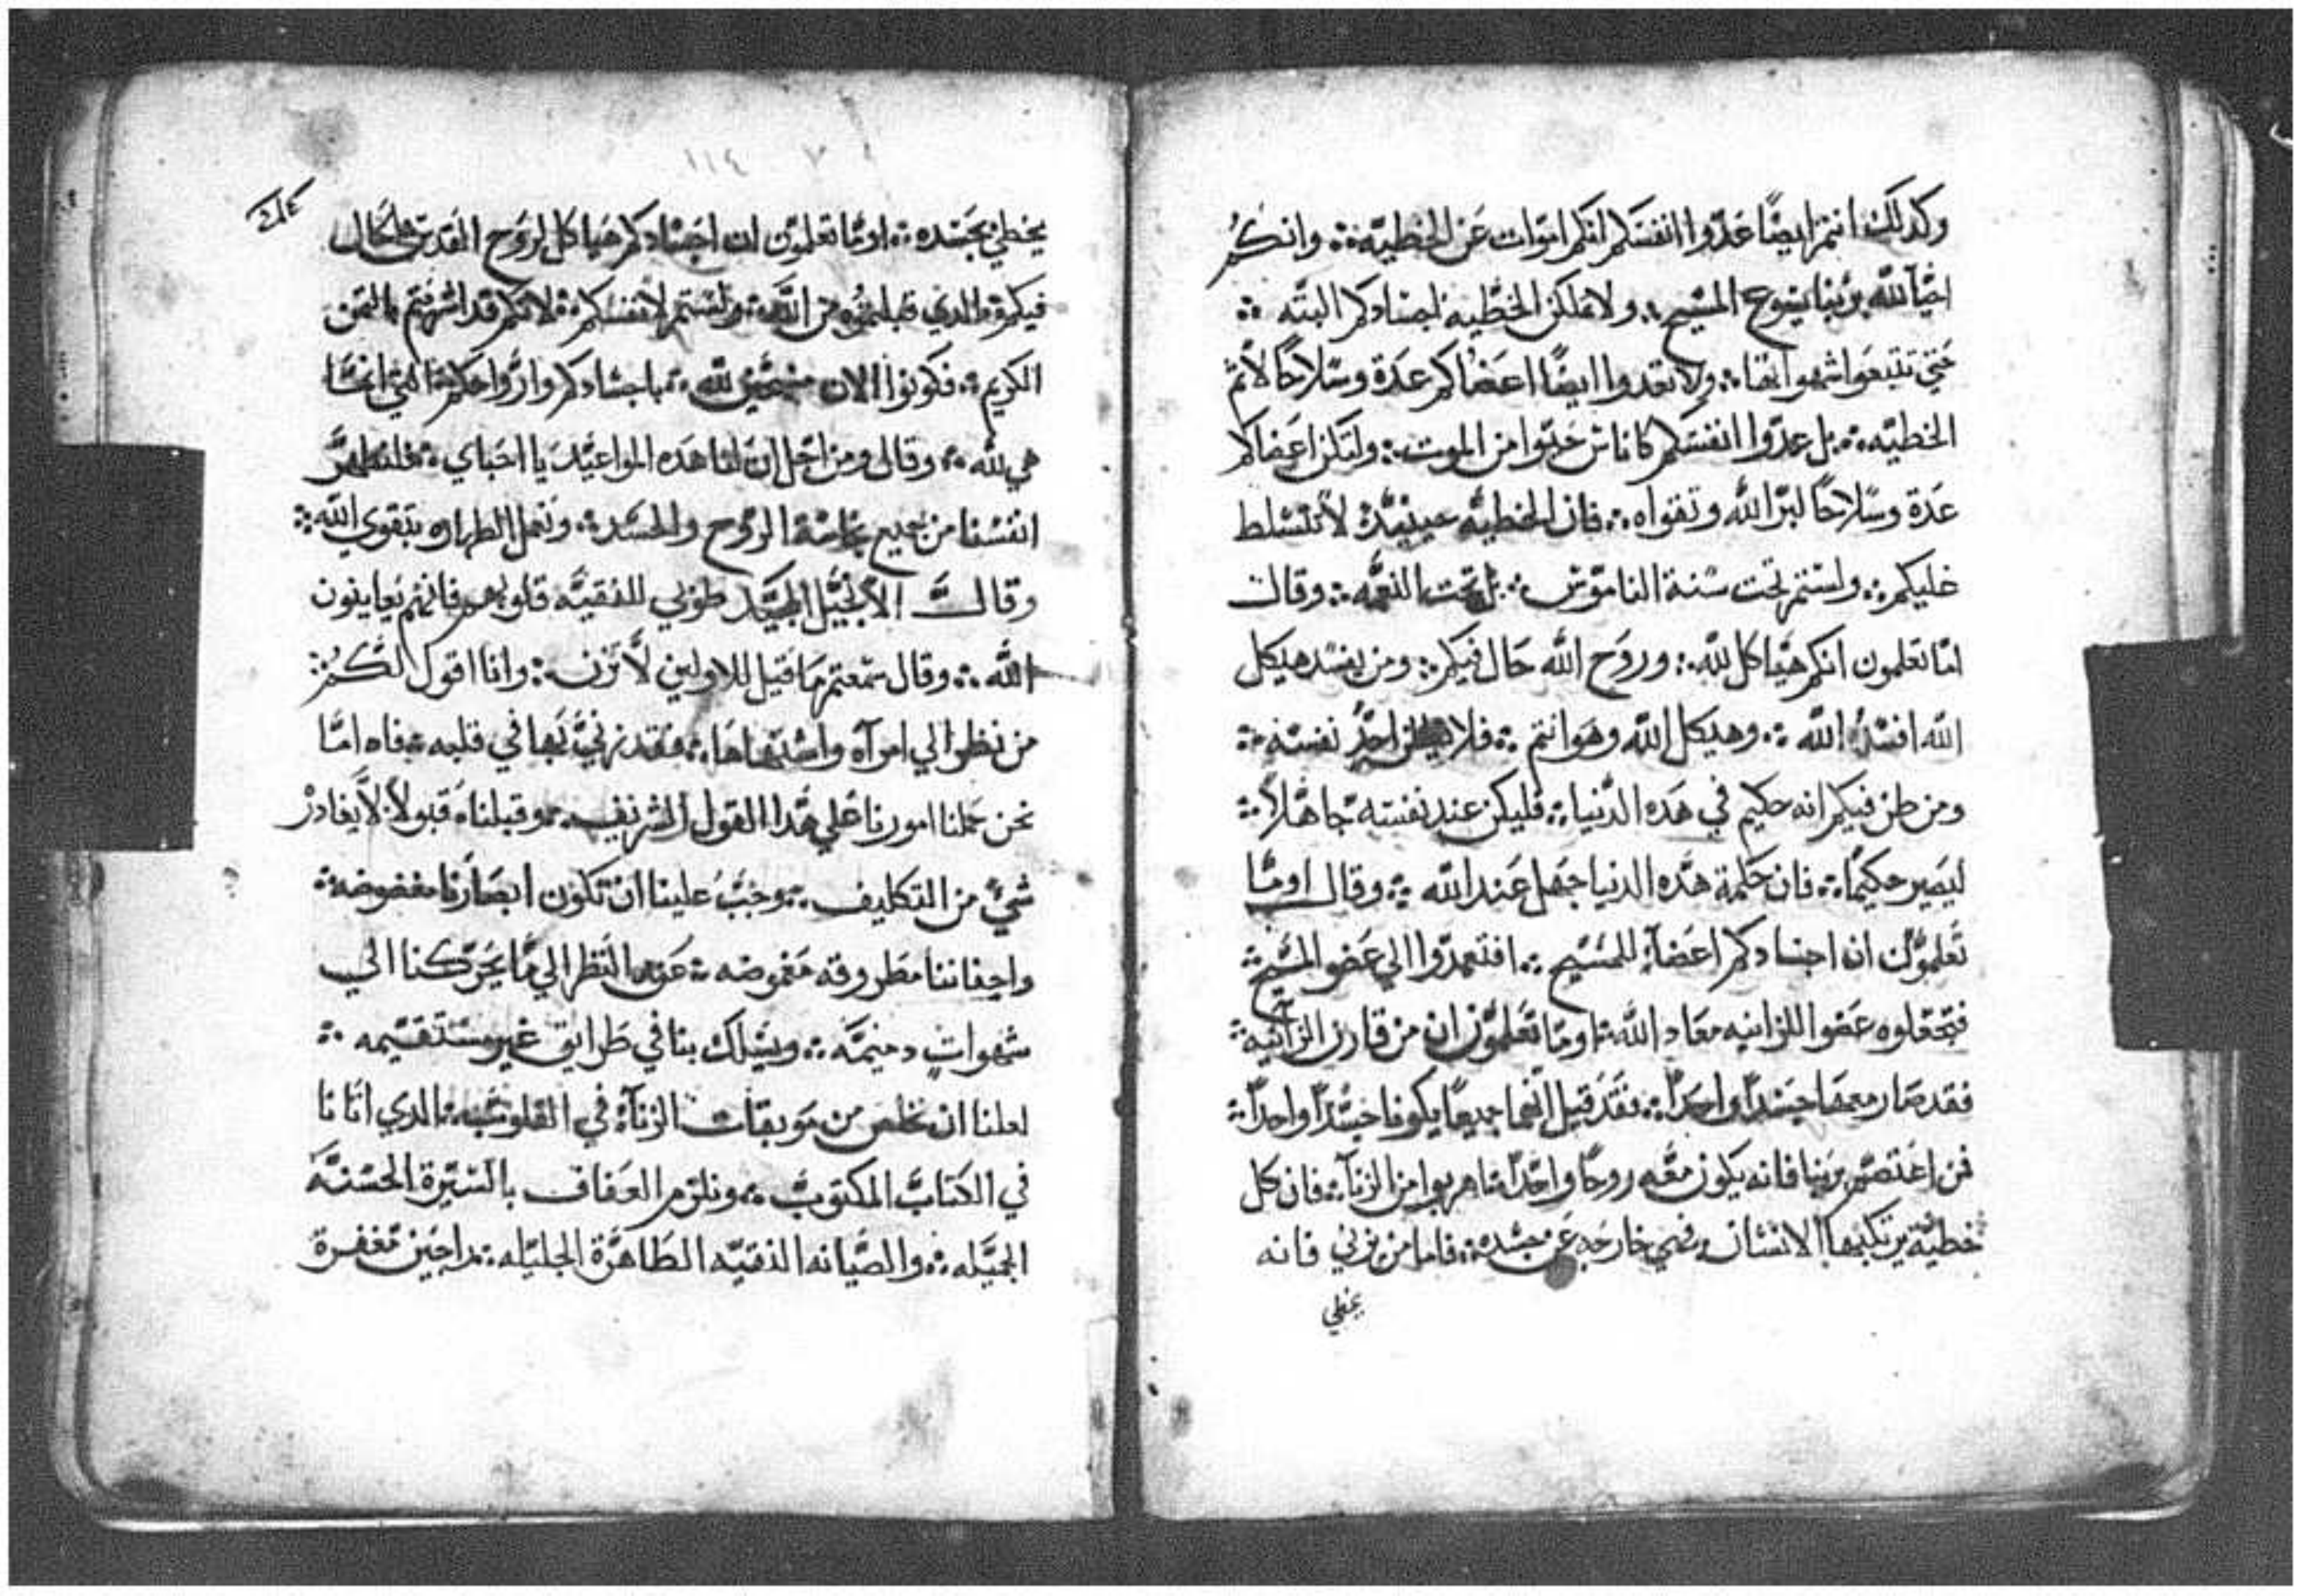 وكذلك انتم ايضًا عَدّوا انفسَكم انكم اموات عَن الخطيّه ؞ وانكُم
احيآ لله بربنا يسوع المسيح ؞ ولا تملكن الخطّيه اجسادكم البتّه ؞
حَتي تتبعَوا شهواتها ؞ ولا تعدوا ايضًا اعضاكم عدَة وسَلاحًا لاثم
الخطيّه ؞ بل عدّوا انفسَكم كاناسٍ حَيّوا من الموت ؞ ولتكن اعَضاكم
عَدَة وسَلاحًا لبّر الله وتقواه ؞ فان الخطيه حينيدٍ لا تتسَلط
عَليكم ؞ ولستم تحت سَنة النامَوّس ؞ بل تحت النعمَه ؞ وقال
امَا تعلمون انكم هيَاكل لله ؞ وروَح الله حَال فيكم ؞ ومن يفسَد هيكل
الله افسَدُ الله ؞ وهيكل الله وهَو انتم ؞ فلا احدٌ نفسَه ؞
ومن ظن فيكم انه حكيم في هَده الدّنيا ؞ فليكن عند نفسَه جَاهَلاً ؞
ليَصير حكيمًا ؞ فان حَكمة هَده الدنيا جَهل عَند الله ؞ وقال اومَا
تَعلموُن ان اجسادكم اعَضآ للمسَيح ؞ افتعمدّوا الي عَضو المسَيح ؞
فتجعَلوه عَضوا للزانيه معَاد الله ؞ اومَا تعَلموّن ان من قارن الزانيه ؞
فقد صَار معهَا جسَدًا واحدًا ؞ فقَد قيل انّهما جميعًا يكونا جسَدًا واحدًا ؞
فمن اعَتصَم برَبنا فانه يكون معَه روحًا واحَدًا ؞ اهربوا من الزنآ ؞ فان كل
خطيّه يرتكبها الانسَان فهي خارجَه عَن جسَده ؞ فاما من يزني فانه
يخطي
١١٤
يخطيَ بجَسَده ؞ اومَا تعلموّن ان اجسَادكم هَياكل لروَح القدس الحَال
فيكم ؞ الدي قبلتموُه من الله ؞ ولستم لانفسَكم ؞ لانكم قد اشتريتم بالتمَن
الكريم ؞ فكونوا الان لله ؞ باجسَادكم وارَواحكم التي انمَا
هي لله ؞ وقال ومن اجَل ان لنا هَده المواعَيدَ يا احبَاي ؞ فلنطهَر
انفسُنا من جميع نجاسَة الروَح والجسَد ؞ ونعمل الطهاره بتقوي الله ؞
وقالَ الانجيَل المجيَد طوَبي للنقيَه قلوبهم فانهم يعاينون
الله ؞ وقال سَمعتم مَا قيل للاولين لاَ تزن ؞ وانا اقول لكُم ؞
من نظر الي امرآه واشتهاهَا ؞ فقد زنيَ بَها في قلبه ؞ فاه امَا
نحن حَملنا امورنا عَلي هَدا القول الشريف ؞ وقبلناهَ قبولاً لا يغادرْ
شيٍ من التكليف ؞ وجَبَ علينا ان تكون ابصَارنا مغضوضه ؞
واجفاننا مطروقه مَغموضه ؞ عَن النظر الي مَا يحَرّكنا الي
شهواتٍ دميمَه ؞ ويسَلك بنا في طَرايق غير مسَتَقيمه ؞
لعلنا ان نخلص من مَوبقات الزناَة في القلوب ؞ الدي اتانا
في الكتابَ المكتوبَ ؞ ونلزم العَفاف بالسَيّرة الحسَنّه
الجميَله ؞ والصَيَانه النقيّه الطَاهَرة الجليَله ؞ راجيَن مَغفرة